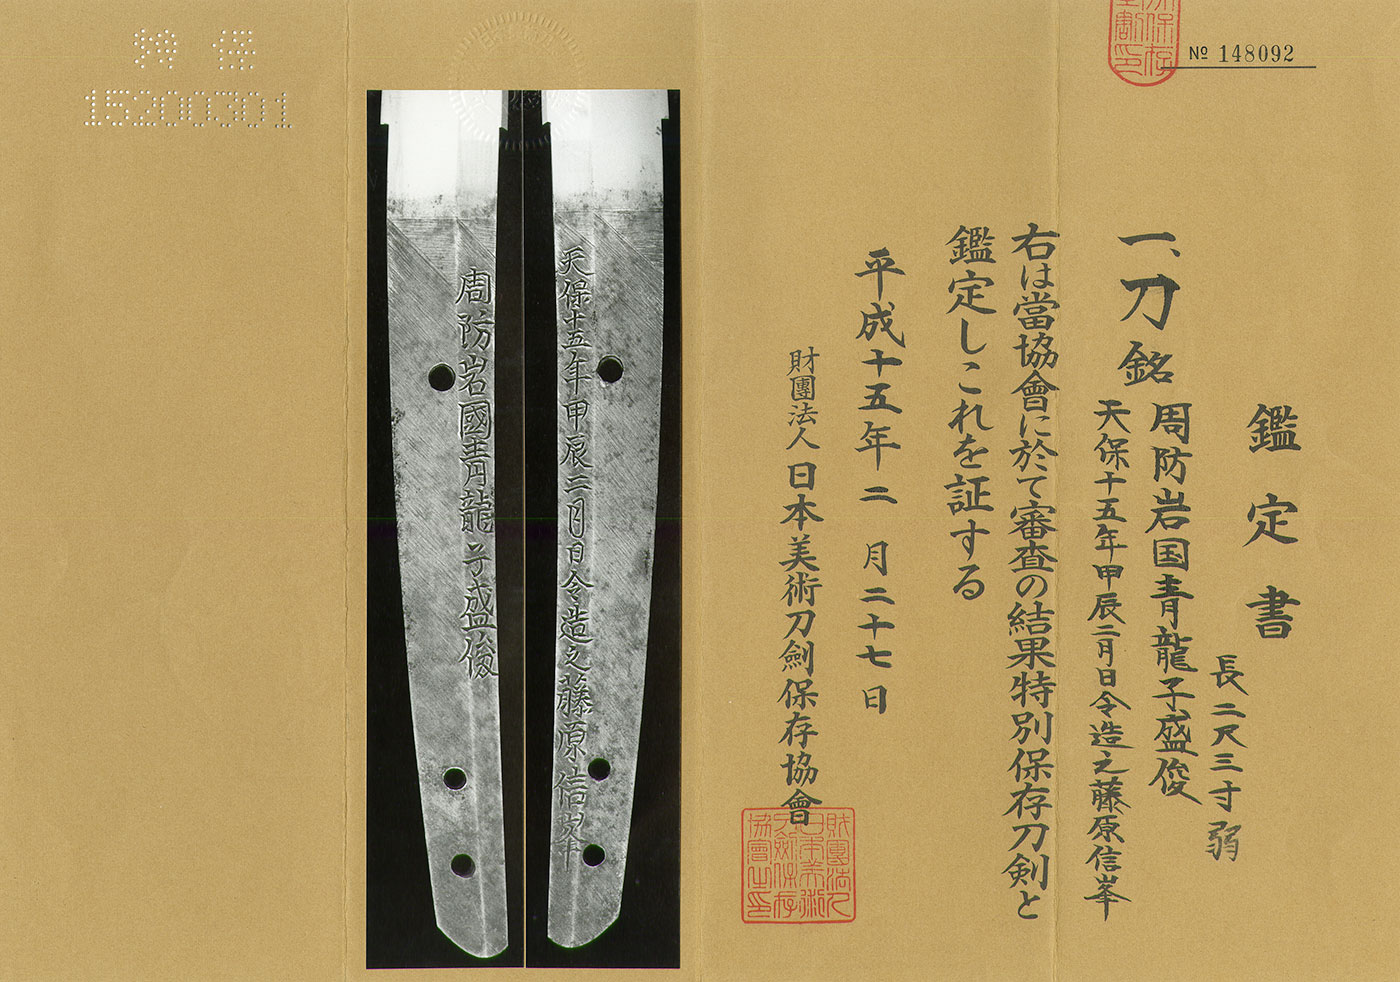 № 148092
鑑定書
長二尺三寸弱
一、刀 銘
周防岩国青龍子盛俊
天保十五年甲辰二月日令造之藤原信峯
右は當協會に於て審査の結果特別保存刀剣と
鑑定しこれを証する
平成十五年二月二十七日
財團法人日本美術刀劍保存協會
財團法人
日本美術
刀劍保存
協會之印
天保十五年甲辰二月日令造之藤原信峯
周防岩國青龍子盛俊
特保
15200301